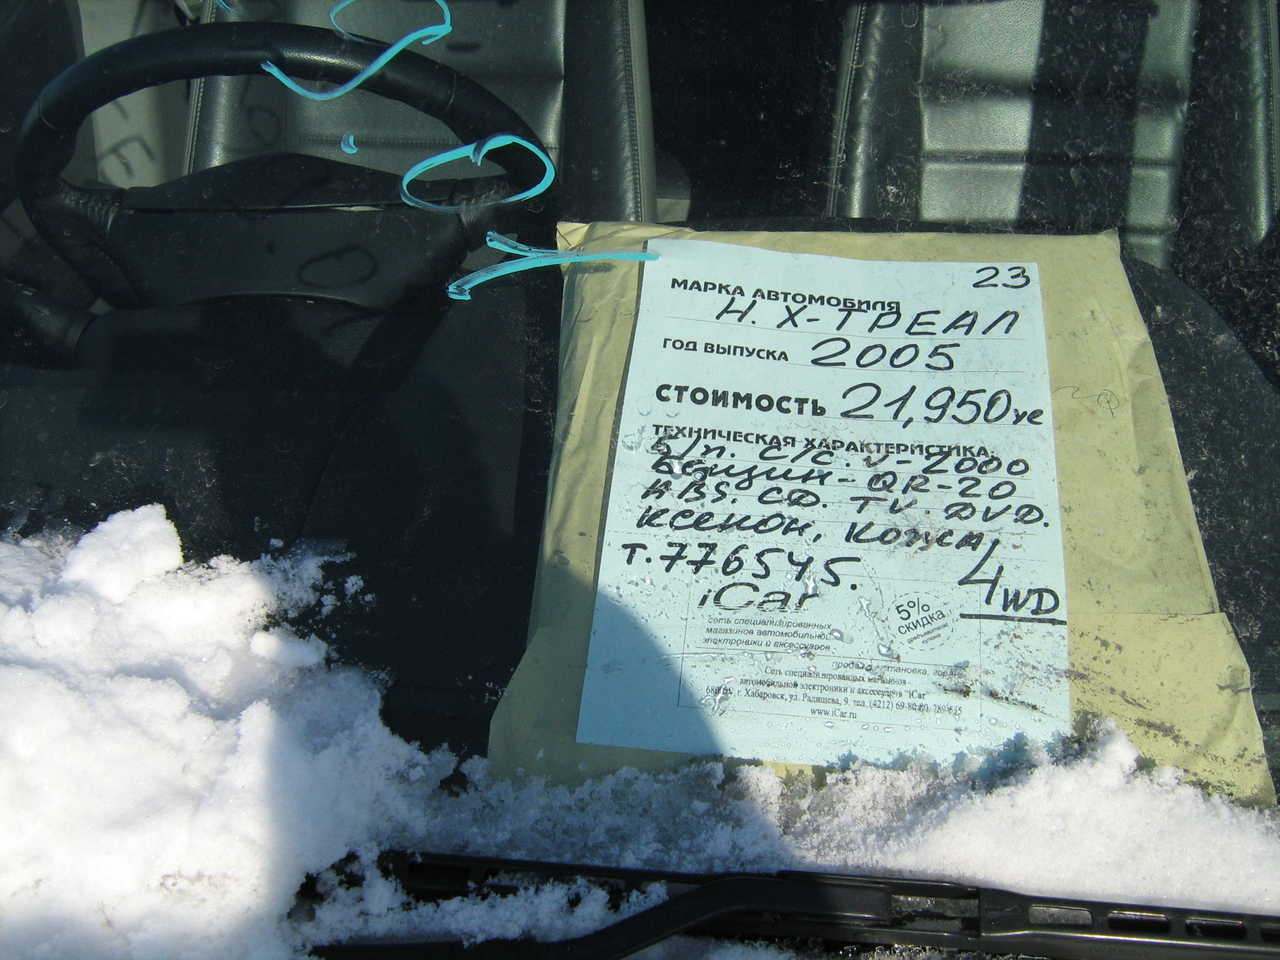 23
МАРКА АВТОМОБИЛЯ
Н. Х-ТРЕАЛ
ГОД ВЫПУСКА 2005
СТОИМОСТЬ 21,950 уе
ТЕХНИЧЕСКАЯ ХАРАКТЕРИСТИКА.
Б/п. С/С. V-2000
Бензин-QR-20
ABS. CD. TV. DVD.
Ксенон, Кожа,
т.776545. 4WD
iCar
5% скидка
сеть специализированных
магазинов автомобильной
электроники и аксессуаров
Сеть специализированных магазинов
автомобильной электроники и аксессуаров "iCar"
г. Хабаровск, ул. Радищева, 9. тел. (4212)
www.iCar.ru